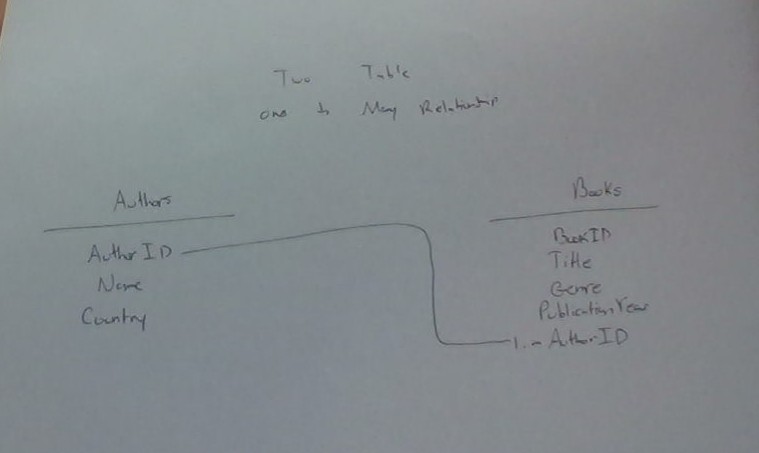 Two Table
one to Many Relationship
Authors
AuthorID
Name
Country
Books
BookID
Title
Genre
PublicationYear
1..∞ AuthorID